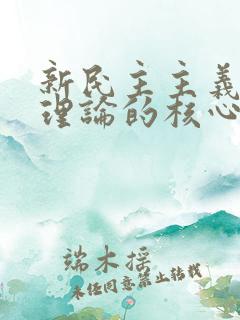 新民主主義
理論的核心
端木摇
未经同意禁止转载